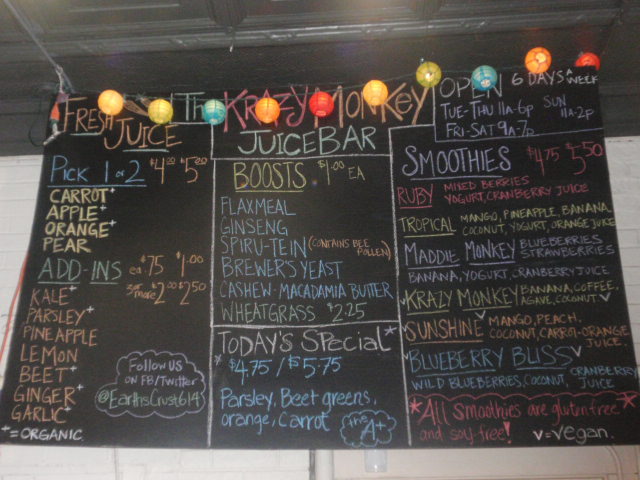 FRESH JUICE
PICK 1 or 2 $4.00 $5.00
CARROT+
APPLE+
ORANGE+
PEAR
ADD-INS ea $.75 $1.00
3 or more $2.00 $2.50
KALE+
PARSLEY+
PINEAPPLE
LEMON
BEET+
GINGER+
GARLIC+
+ = ORGANIC
FOLLOW US
ON FB/Twitter
@EarthsCrust614
THE KRAZY MONKEY
JUICE BAR
BOOSTS $1.00 EA
FLAXMEAL
GINSENG
SPIRU-TEIN (CONTAINS BEE
POLLEN)
BREWER'S YEAST
CASHEW-MACADAMIA BUTTER
WHEATGRASS $2.25
TODAY'S Special*
* $4.75 / $5.75
Parsley, Beet greens,
orange, Carrot
the
A+
OPEN 6 DAYS A WEEK
TUE-THU 11A-6p SUN
FRI-SAT 9A-7p 11A-2p
SMOOTHIES $4.75 $5.50
RUBY MIXED BERRIES
YOGURT, CRANBERRY JUICE
TROPICAL MANGO, PINEAPPLE, BANANA,
COCONUT, YOGURT, ORANGE JUICE
MADDIE MONKEY BLUEBERRIES
STRAWBERRIES
BANANA, YOGURT, CRANBERRY JUICE
V KRAZY MONKEY BANANA, COFFEE,
AGAVE, COCONUT. V
V SUNSHINE V MANGO, PEACH,
COCONUT, CARROT-ORANGE
JUICE.
V BLUEBERRY BLISS V CRANBERRY
WILD BLUEBERRIES, COCONUT, JUICE
*All smoothies are gluten free*
and soy free! V=Vegan.